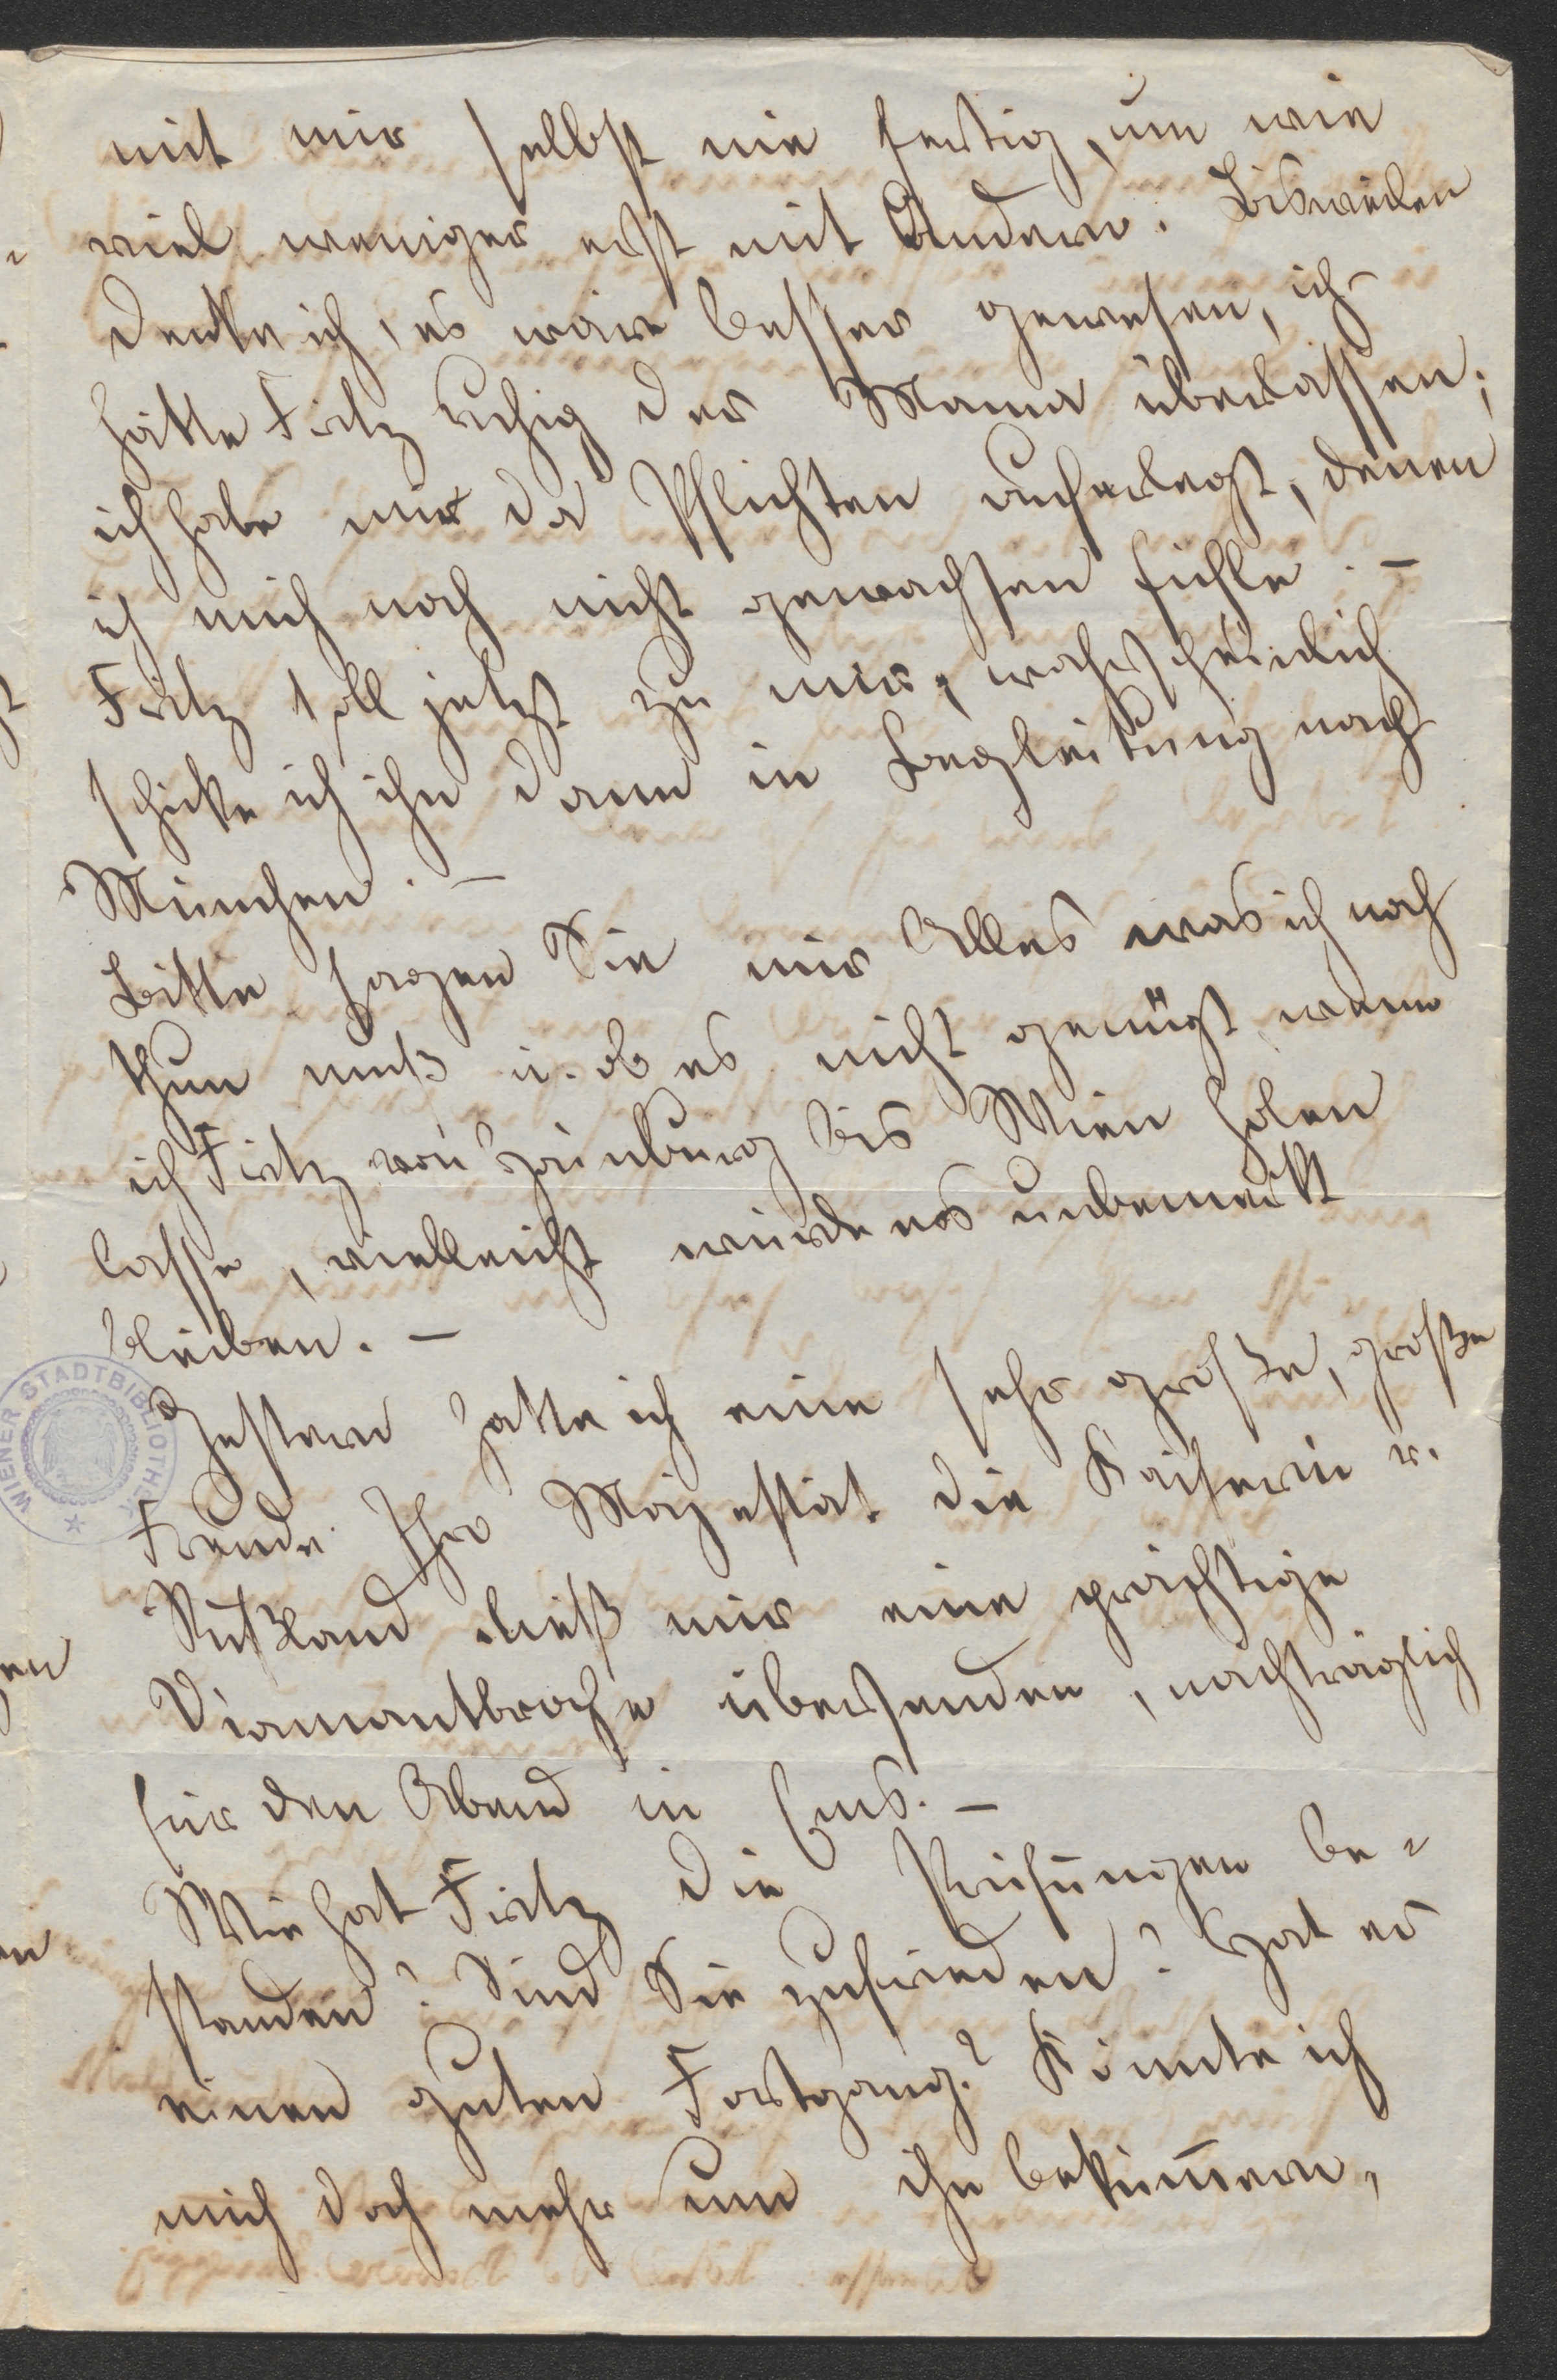 mit mir selbst nie fertig, um wie
viel weniger erst mit Andern. Bisweilen
denke ich, es wäre besser gewesen, ich
hätte Fritz ruhig der Mama überlassen;
ich habe mir da Pflichten auferlegt, denen
ich mich noch nicht gewachsen fühle. –
Fritz soll jetzt zu mir, wahrscheinlich
schicke ich ihn dann in Begleitung nach
München. –
Bitte sagen Sie mir Alles was ich noch
thun muß u. ob es nicht genügt wenn
ich Fritz von Hainburg bis Wien holen
lasse, vielleicht würde es unbemerkt
bleiben. –
Gestern hatte ich eine sehr große, große
Freude. Ihre Majestät die Kaiserin v.
Rußland ließ mir eine prächtige
Diamantbroche übersenden, nachträglich
für den Abend in Ems. –
Wie hat Fritz die Prüfungen be-
standen? Sind Sie zufrieden? Hat er
einen guten Fortgang? Könnte ich
mich doch mehr um ihn bekümmern,
WIENER STADTBIBLIOTHEK